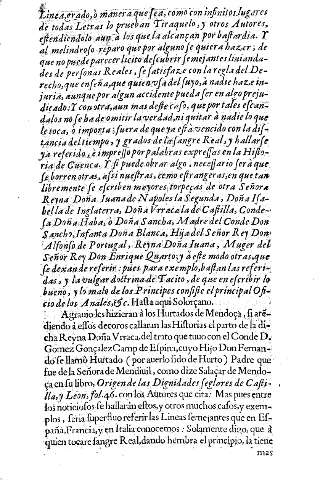 Linea, grado, ò manera que sea, como con infinitos lugares
de todas Letras lo prueban Tiraquelo, y otros Autores,
estendiendolo aun à los que la alcançan por bastardia. Y
al melindroso reparo que por alguno se quiera hazer, de
que no puede parecer licito descubrir semejantes liviandades
de personas Reales, se satisfaze con la regla del Derecho,
que enseña, que quien vsa del suyo, à nadie haze injuria,
aunque por algun accidente pueda ser en algo perjudicado:
Y contra, aun mas deste caso, que por tales escandalos
no se ha de omitir la verdad, ni quitar à nadie lo que
le toca, ò importa; fuera de que ya està vencido con la distancia
del tiempo, y grados de la sangre Real, y hallarse
ya referido, è impresso por palabras expressas en la Historia
de Cuenca. Y si puede obrar algo, necessario serà que
se borren otras, assi nuestras, como estrangeras, en que tan
libremente se escriben mayores torpeças de otra Señora
Reyna Doña Iuana de Napoles la Segunda, Doña Isabella
de Inglaterra, Doña Vrraca la de Castilla, Condesa
Doña Haba, ò Doña Sancha, Madre del Conde Don
Sancho, Infanta Doña Blanca, Hija del Señor Rey Don
Alfonso de Portugal, Reyna Doña Iuana, Muger del
Señor Rey Don Enrique Quarto; y à este modo otras, que
se dexan de referir: pues para exemplo, bastan las referidas,
y la vulgar doctrina de Tacito, de que en escribir lo
bueno, y lo malo de los Principes consiste el principal Oficio
de los Anales, &c. Hasta aqui Solorçano.
Agravio les hizieran à los Hurtados de Mendoça, si atendiendo
à essos decoros callaran las Historias el parto de la dicha
Reyna Doña Vrraca, del trato que tuvo con el Conde D.
Gomez Gonçalez Camp de Espino, cuyo Hijo Don Fernando
se llamò Hurtado (por averlo sido de Hurto) Padre que
fue de la Señora de Mendiuil, como dize Salaçar de Mendoça
en su libro, Origen de las Dignidades seglares de Castilla,
y Leon, fol. 46. con los Autores que cita. Mas pues entre
los noticiosos se hallaràn estos, y otros muchos casos, y exemplos,
seria superfluo referir las Lineas semejantes que en España,
Francia, y en Italia conocemos: Solamente digo, que à
quien tocare sangre Real, dando hembra el principio, la tiene
mas